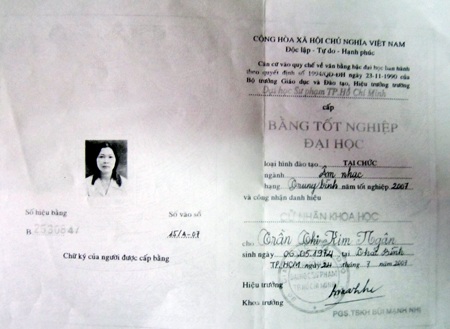 CỘNG HÒA XÃ HỘI CHỦ NGHĨA VIỆT NAM
Độc lập - Tự do - Hạnh phúc
Căn cứ vào quy chế về văn bằng bậc đại học ban hành
theo quyết định số 1994/QĐ-ĐH ngày 23-11-1990 của
Bộ trưởng Giáo dục và Đào tạo, Hiệu trưởng trường
Đại học Sư phạm TP.Hồ Chí Minh
cấp
BẰNG TỐT NGHIỆP
ĐẠI HỌC
loại hình đào tạo TẠI CHỨC
ngành Âm nhạc
hạng Trung bình năm tốt nghiệp 2007
và công nhận danh hiệu
CỬ NHÂN KHOA HỌC
cho Trần Thị Kim Ngân
sinh ngày 06.05.1974 tại Thái Bình
TP.HCM ngày 24 tháng 7 năm 2007
Hiệu trưởng
Khoa trưởng
PGS.TSKH BÙI MẠNH NHỊ
Số hiệu bằng
Số vào sổ
B
15/A-07
Chữ ký của người được cấp bằng